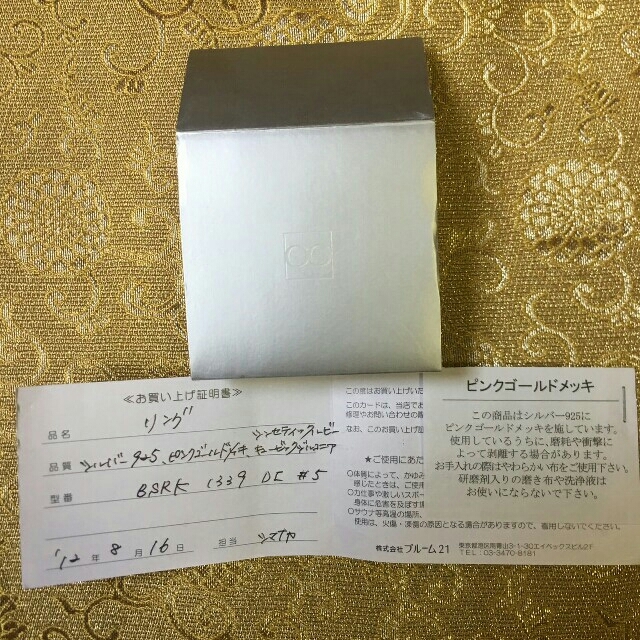 ≪お買い上げ証明書≫
品名 リング
シンセティックルビー
品質 シルバー925、ピンクゴールドメッキ、キュービックジルコニア
型番 BSRK 1339 DC #5
'12年 8月 16日 担当 シマナカ
この度はお買い上げいた
このカードは、当店であ
修理やお問い合わせの際
なお、このお買い上げ証
★ご使用にあた
○体質によって、かゆみ
感じたときは、ご使用
○力仕事や激しいスポー
身体に危害を及ぼす
○サウナ等高温の場所、
使用は、火傷・凍傷の原因となる場合がありますので、着用しないでください。
株式会社 ブルーム21
東京都港区南青山3-1-30エイベックスビル2F
TEL:03-3470-8181
ピンクゴールドメッキ
この商品はシルバー925に
ピンクゴールドメッキを施しています。
使用しているうちに、磨耗や衝撃に
よって剥離する場合があります。
お手入れの際はやわらかい布をご使用下さい。
研磨剤入りの磨き布や洗浄液は
お使いにならないで下さい。